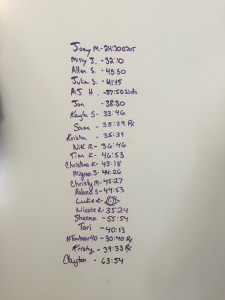 Joey M. - 24:30
Missy J. - 32:10
Allen S. - 49:50
Julie S. - 41:15
AJ H. - 37:50
Jon - 38:30
Kayla S - 33:46
35:39 Rx
Kristin - 35:39
Nik R - 36:46
Tim K - 46:53
Christina K - 43:18
44:26
Christy M - 45:27
Roland S - 44:53
Luke R -
Nicole R - 35:24
Sheena - 55:54
Tori - 40:13
- 30:40 Rx
Kristy - 39:33 Rx
Clayton - 63:54